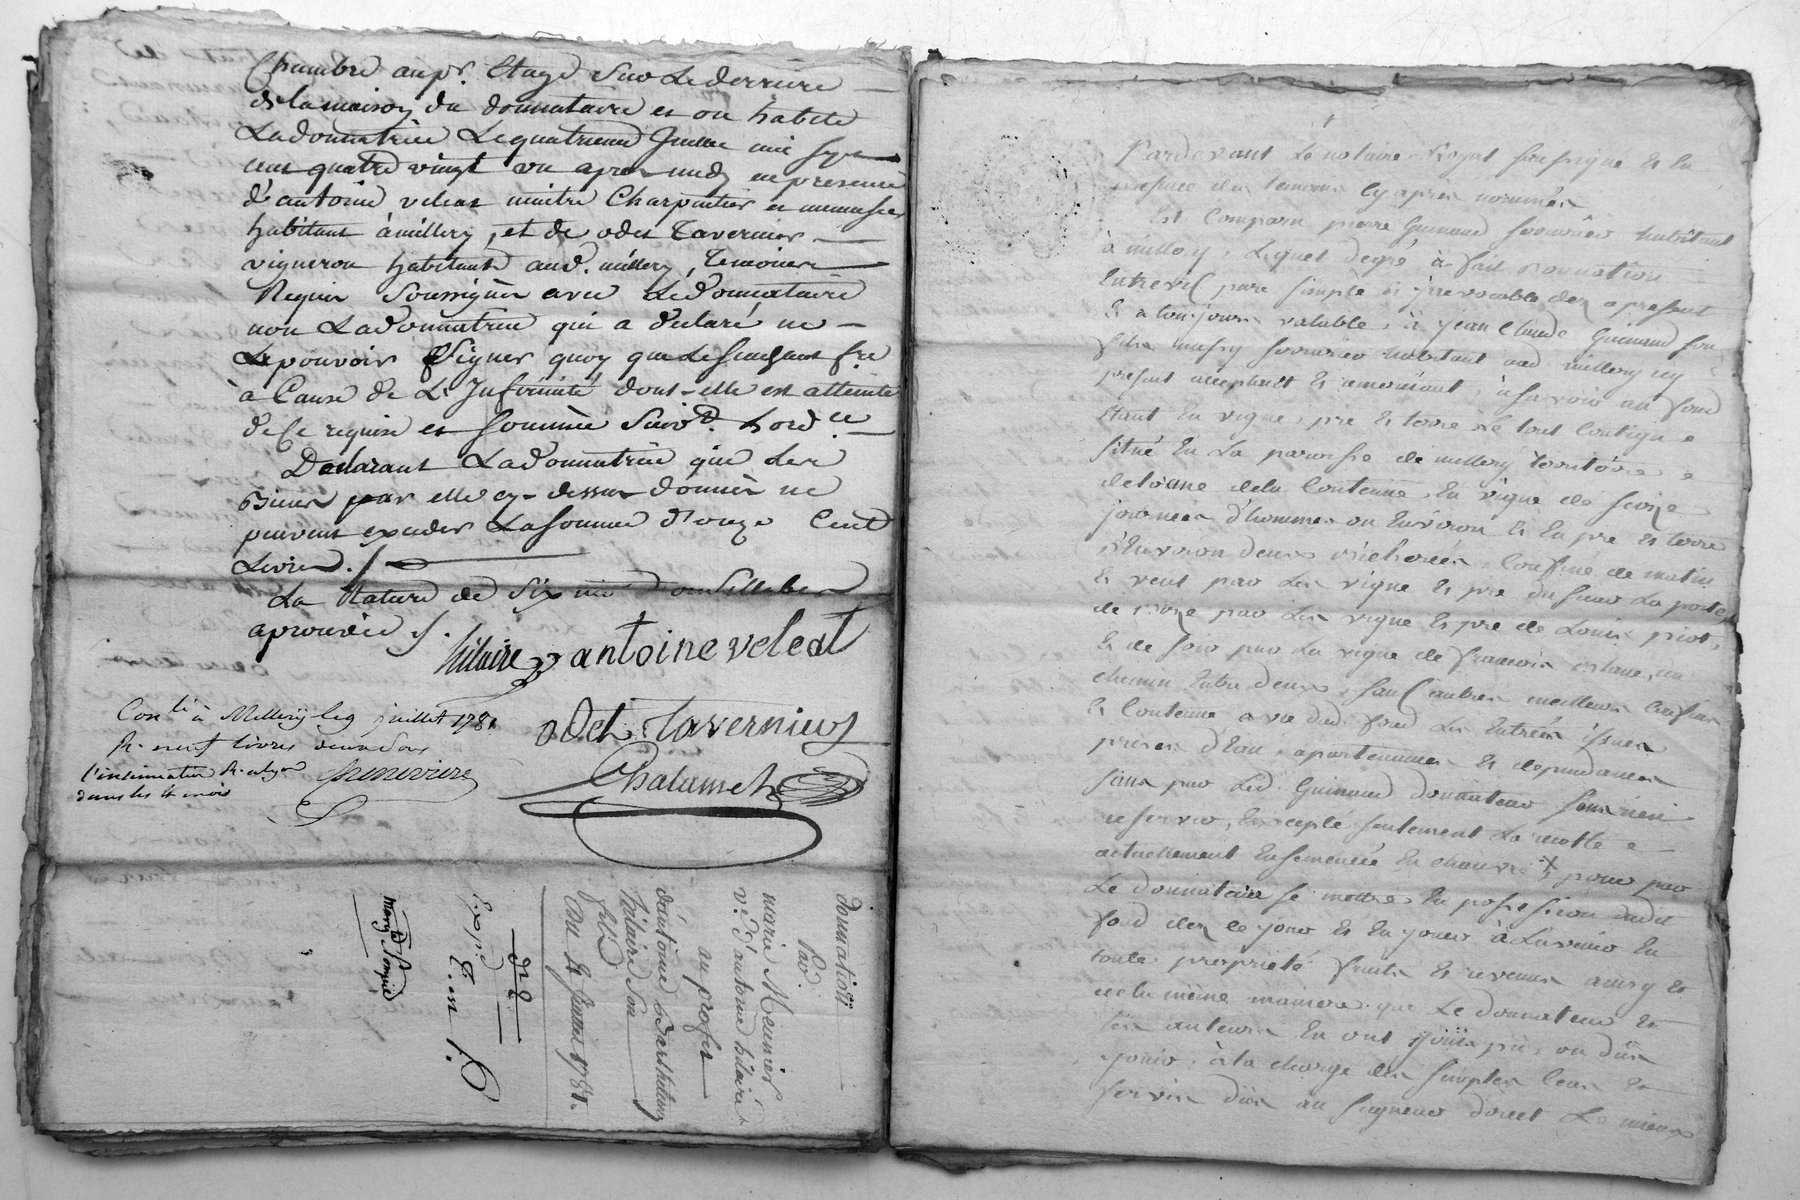 Chambre au pr. Etage Sur Le derriere
de la maison du donnataire et ou habite
La donnatrice Le quatrieme Juillet mil sept
cent quatre vingt un apres midy en presence
d'antoine veleat maitre Charpentier et menusier
habitant à millery, et de odet Tavernier
vigneron habitant aud. millery, Temoins
Requis Soussignés avec Le donnataire
non La donnatrice qui a declaré ne
Le pouvoir Signer quoy que Le sachant fre
à Cause de L'Infirmité dont elle est atteinte
de ce requise et sommée Suivt. Lord.ce
Declarant La donnatrice que Les
Biens par elle cy-dessus donnés ne
peuvent exceder La somme d'onze Cent
Livres ./.
La Rature de Six mots
aprouvée ./.
hilaire antoine veleat
odet Tavernier
Chalamet
Con.lé à Millery le 9 juillet 1781
R. neuf livres
l'insinuation
dans les 4 mois
donnation
Par
marie Meunier
ve. d'antoine hilaire
au profit
d'antoine Barthelemy
hilaire Son
fils
Du 4 Juillet 1781.
Expié
Pardevant Le notaire Royal soussigné et en
presence des temoins cy apres nommés
Est Comparu pierre Guinand serrurier habitant
à millery, Lequel degré à fait Donnation
Entrevifs pure simple et irrevocable des a present
et a toujours valable, à jean Claude Guinand son
fils aussy serrurier habitant aud. millery icy
present acceptant et remerciant, à savoir un fond
Etant En vigne, pré et terre Le tout Contigu
situé En La paroisse de millery territoire
de la Contenue En vigne de seize
journées d'hommes ou Environ et En pré et terre
d'Environ deux bicherées, Confiné de matin
et vent par Les vigne et pré du sieur La poste,
de bize par Les vigne et pré de Louis piot,
et de soir par La vigne de francois un
chemin Entre deux, sauf autres meilleurs Confins
et Contenue avec dud. fond Les Entrées issues
prises d'Eau, apartenances et dependances
sans par Led. Guinand donnateur sans rien
reserver, Excepté seulement La recolte
actuellement Ensemencée En chanvre X pour par
Le donnataire se mettre En possession dudit
fond des ce jour et En jouir à Lavenir En
toute proprieté fruits et revenus ainsy et
de la même maniere que Le donnateur et
ses auteurs En ont jouis pû, ou dûs
jouir, à la charge des simples Cens et
servis dûs au seigneur direct Le mieux